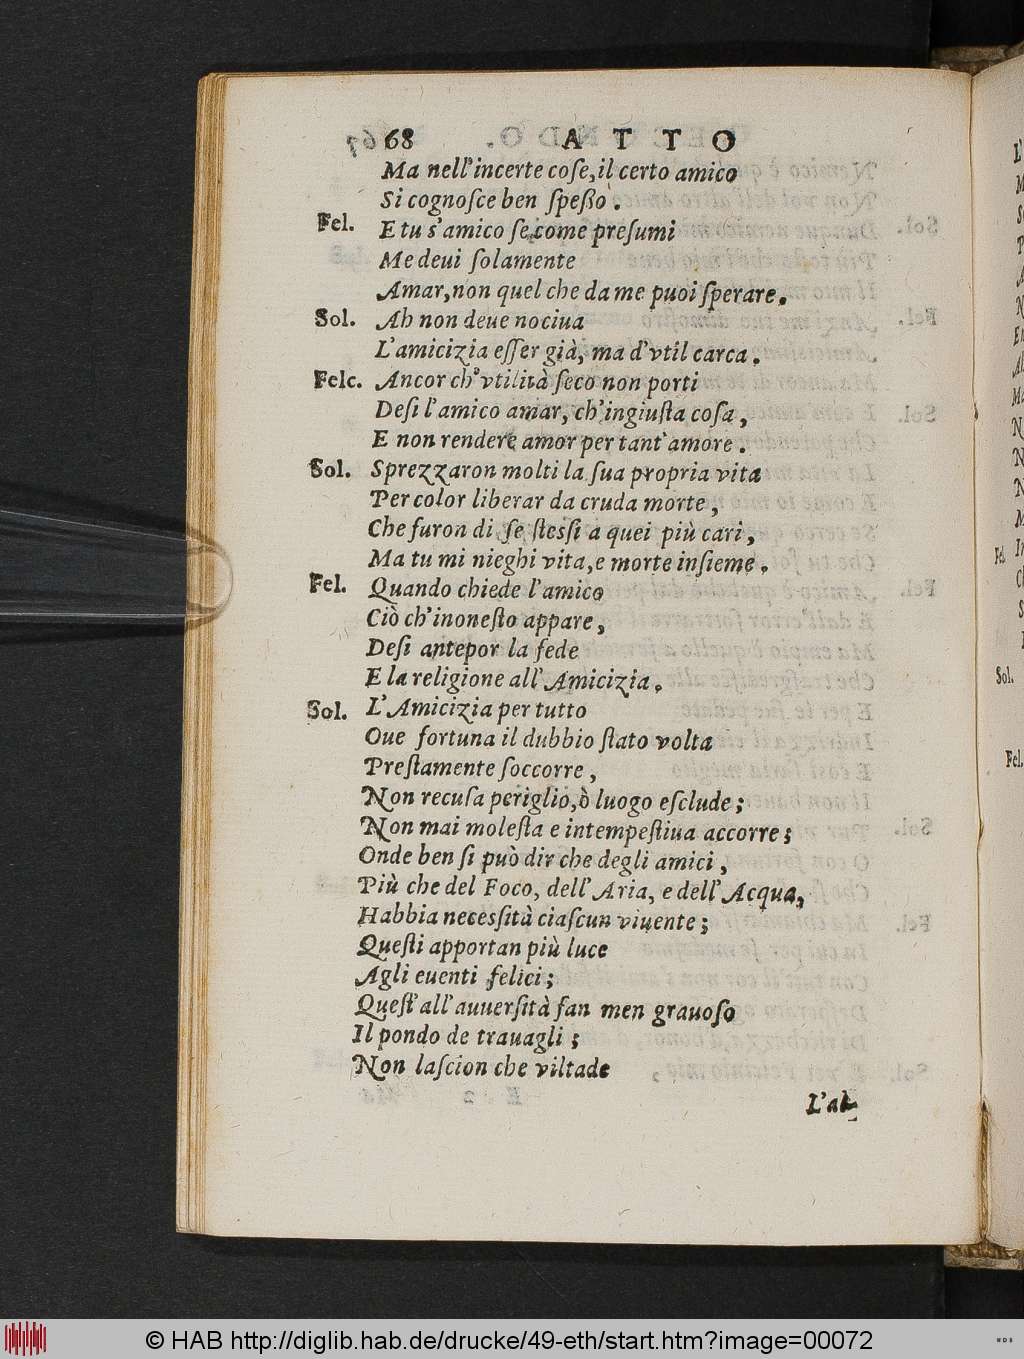 68 ATTO
Ma nell'incerte coſe, il certo amico
Si cognoſce ben ſpeßo.
Fel. E tu s'amico ſe, come preſumi
Me deui ſolamente
Amar, non quel che da me puoi ſperare.
Sol. Ah non deue nociua
L'amicizia eſſer già, ma d'vtil carca.
Felc. Ancor ch'vtilità ſeco non porti
Deſi l'amico amar, ch'ingiuſta coſa,
E non rendere amor per tant'amore.
Sol. Sprezzaron molti la ſua propria vita
Per color liberar da cruda morte,
Che furon di ſe ſtesſi a quei più cari,
Ma tu mi nieghi vita, e morte inſieme.
Fel. Quando chiede l'amico
Ciò ch'inoneſto appare,
Deſi antepor la fede
E la religione all'Amicizia.
Sol. L'Amicizia per tutto
Oue fortuna il dubbio ſtato volta
Preſtamente ſoccorre,
Non recuſa periglio, ò luogo eſclude;
Non mai moleſta e intempeſtiua accorre;
Onde ben ſi può dir che degli amici,
Più che del Foco, dell'Aria, e dell'Acqua,
Habbia necesſità ciaſcun viuente;
Queſti apportan più luce
Agli euenti felici;
Queſt'all'auuerſità fan men grauoſo
Il pondo de trauagli;
Non laſcion che viltade
L'al-
L'
Fel.
Sol.
Fel.
© HAB http://diglib.hab.de/drucke/49-eth/start.htm?image=00072